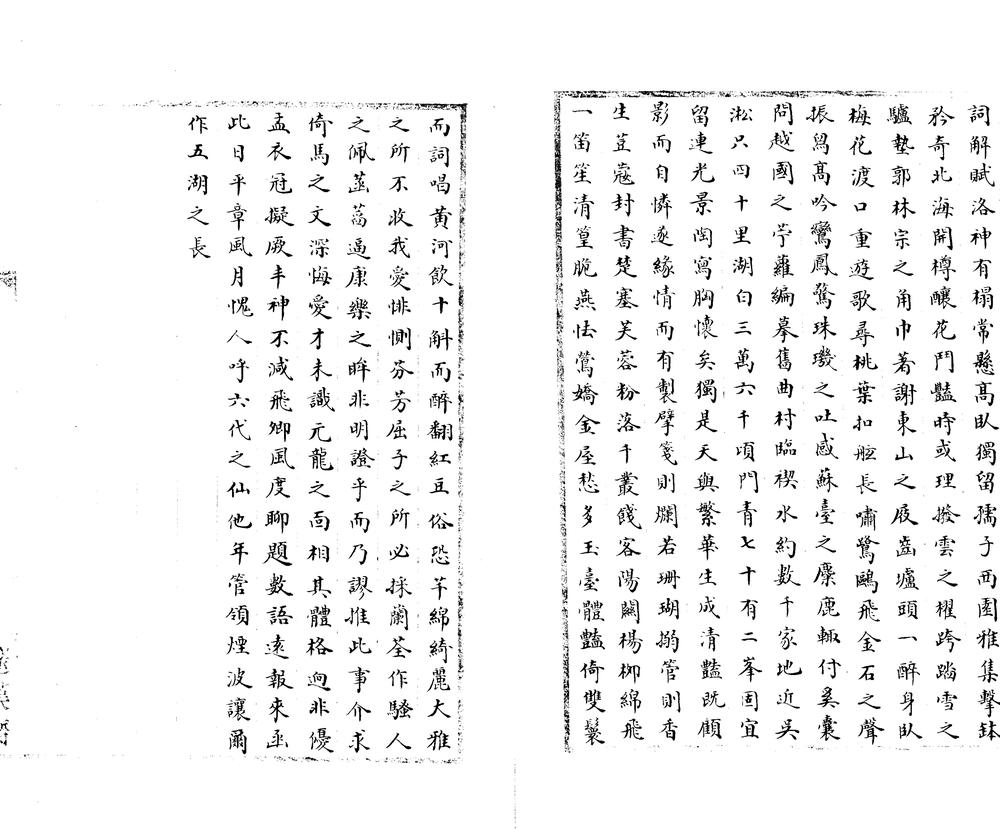 詞解賦洛神有榻常懸高臥獨留孺子西園雅集擊缽
矜奇北海開樽釀花鬥豔時或理撥雲之櫂跨踏雪之
驢墊郭林宗之角巾著謝東山之屐齒壚頭一醉身臥
梅花渡口重遊歌尋桃葉扣舷長嘯鷺鷗飛金石之聲
振舄高吟鸞鳳驚珠璣之吐感蘇臺之麋鹿輙付奚囊
問越國之苧蘿編摹舊曲村臨禊水約數千家地近吳
淞只四十里湖白三萬六千頃門青七十有二峯固宜
留連光景陶寫胸懷矣獨是天與繁華生成清豔既顧
影而自憐遂緣情而有製擘箋則爛若珊瑚搦管則香
生荳蔻封書楚塞芙蓉粉落千叢餞客陽關楊柳綿飛
一笛笙清篁脆燕怯鶯嬌金屋愁多玉臺體豔倚雙鬟
而詞唱黃河飲十斛而醉翻紅豆俗恐芊綿綺麗大雅
之所不收我愛悱惻芬芳屈子之所必採蘭荃作騷人
之佩蕌逼康樂之眸非明證乎而乃謬推此事介求
倚馬之文深悔愛才未識元龍之面相其體格迥非優
孟衣冠擬厥丰神不減飛卿風度聊題數語遠報來函
此日平章風月愧人呼六代之仙他年管領煙波讓爾
作五湖之長